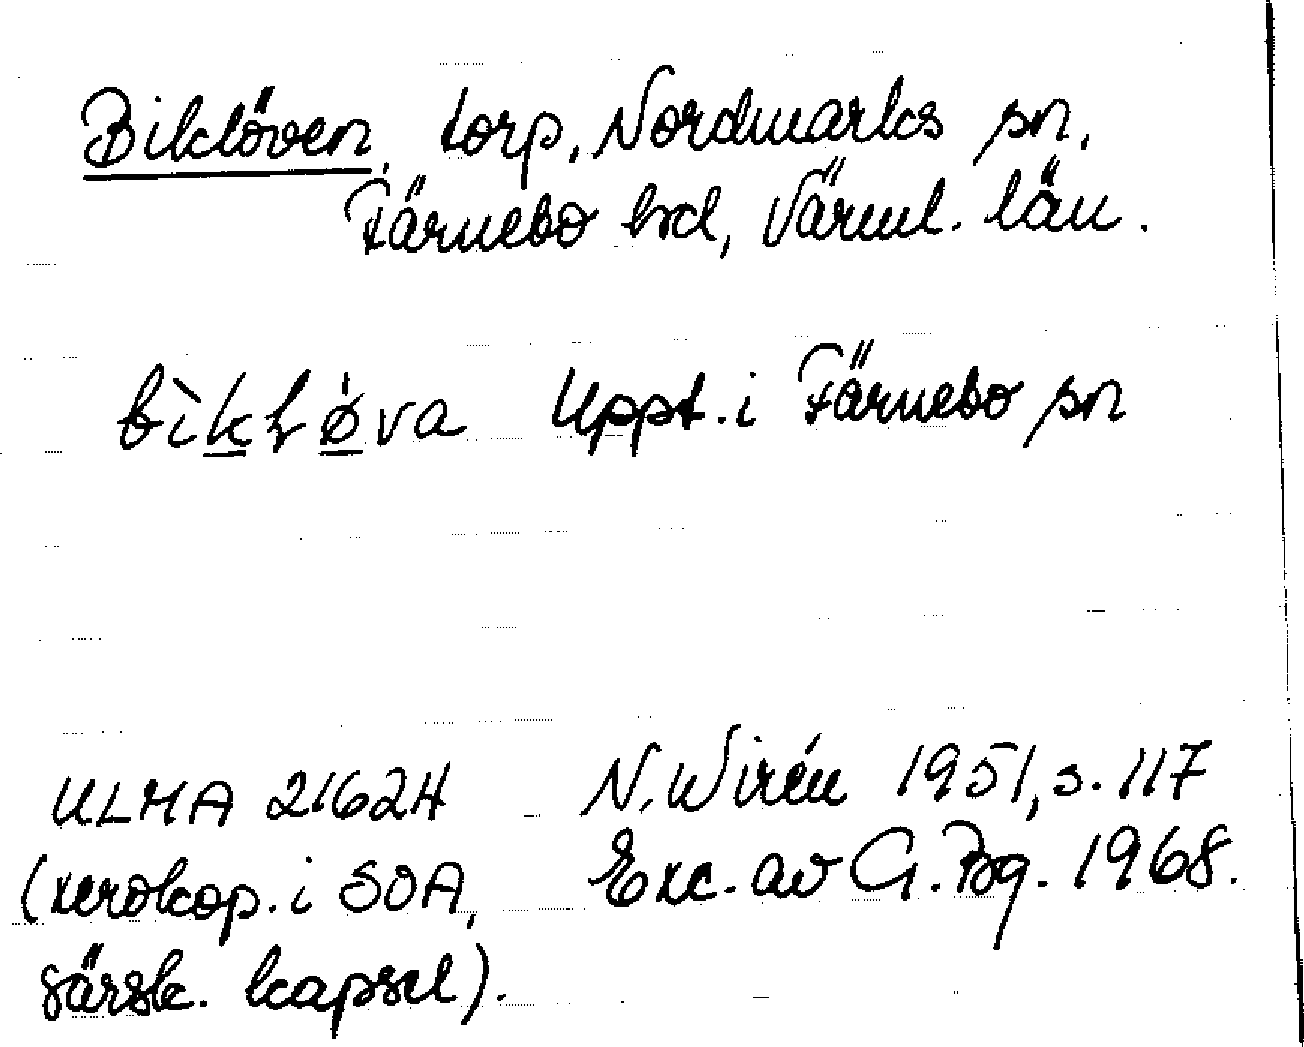 Biklöven, torp, Nordmarks sn,
Färnebo hd, Värml. län.
bìkl̥ø̀va Uppt. i Färnebo sn
ULMA 21624 N. Wirén 1951, s. 117
(xerokop. i SOA, Exc. av G. Bg. 1968.
särsk. kapsel).